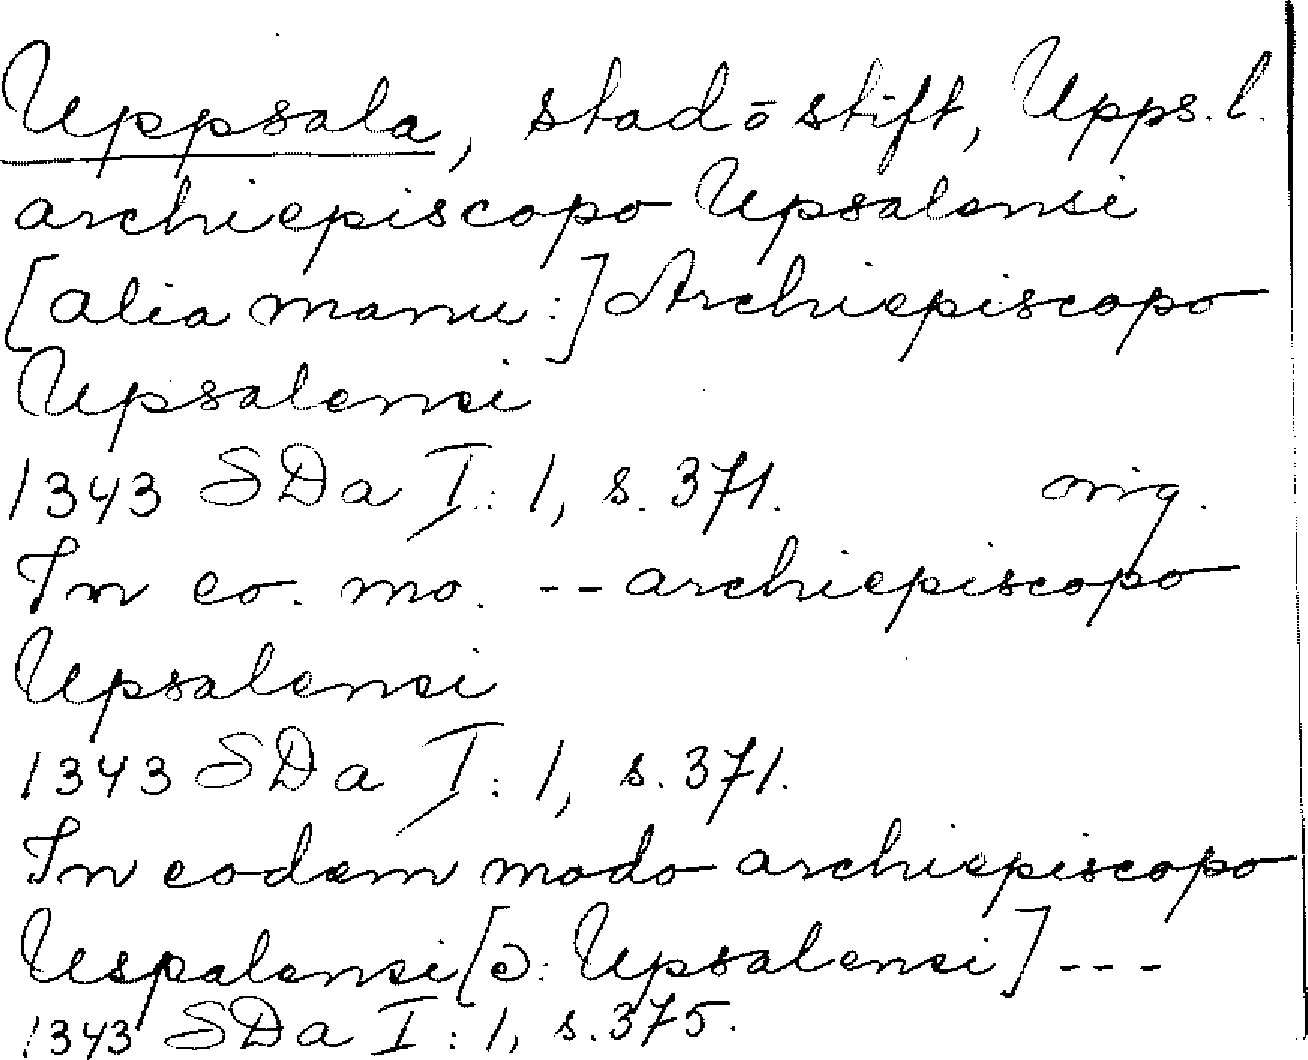 Uppsala, stad o stift, Upps. l.
archiepiscopo Upsalensi
[alia manu:] Archiepiscopo
Upsalensi
1343 SDa I:1, s. 371. orig.
In eo. mo. -- archiepiscopo
Upsalensi
1343 SDa I:1, s. 371.
In eodem modo archiepiscopo
Uspalensi [ɔ: Upsalensi] ---
1343 SDa I:1, s. 375.